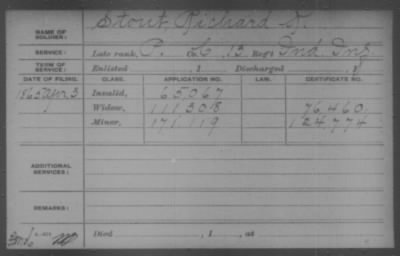 NAME OF SOLDIER: Stout, Richard D.
SERVICE: Late rank, P. Co. 13 Reg't Ind Inf
TERM OF SERVICE: Enlisted , 1 Discharged , 1
DATE OF FILING. CLASS. APPLICATION NO. LAW. CERTIFICATE NO.
1865 Apr 3 Invalid, 65067
Widow, 111308 76,460
Minor, 171,119 124,774
ADDITIONAL SERVICES:
REMARKS:
Died , 1 , at